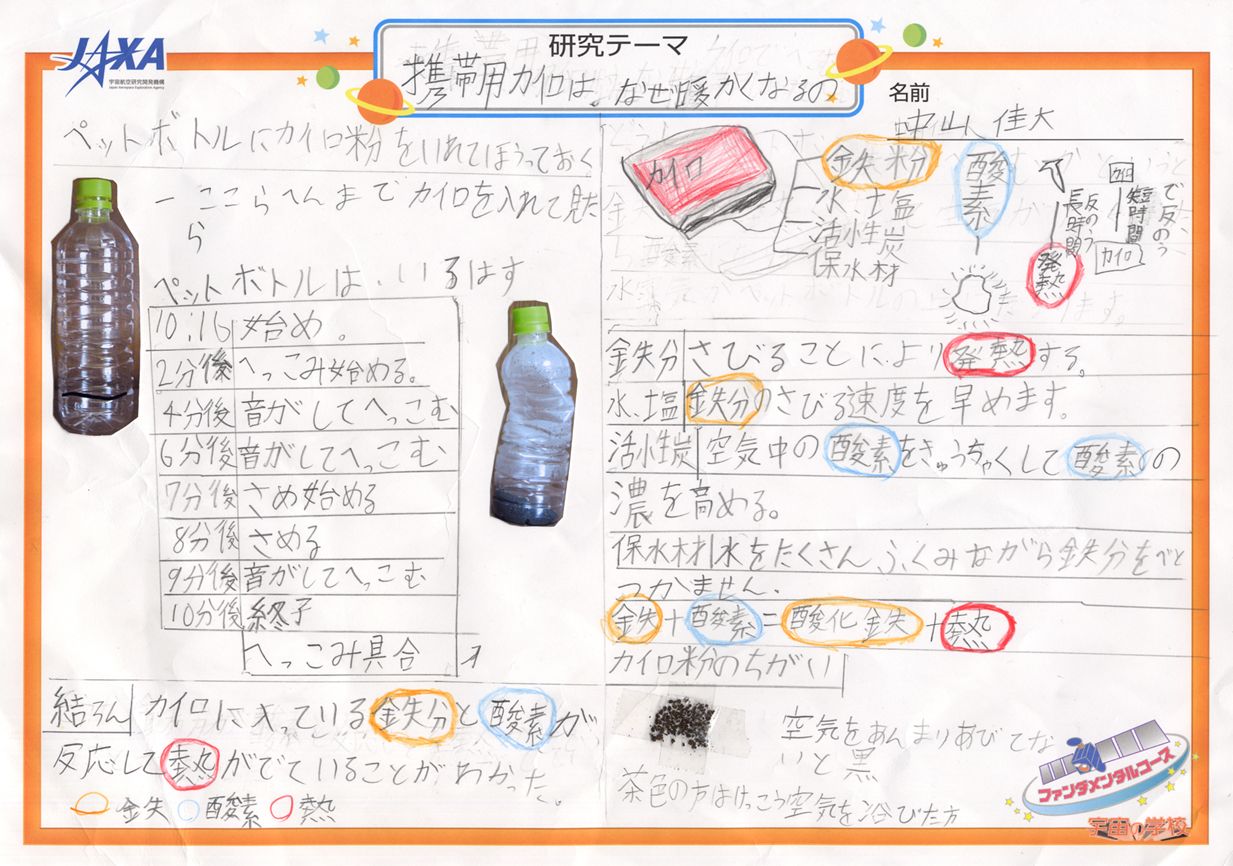 JAXA
宇宙航空研究開発機構
Japan Aerospace Exploration Agency
研究テーマ
携帯用カイロは。なぜ暖かくなるの
名前
中山 佳大
ペットボトルにカイロ粉をいれてほうっておく
ー ここらへんまでカイロを入れて見た
ら
ペットボトルは、いるはす
10:16 始め。
2分後 へっこみ始める。
4分後 音がしてへっこむ
6分後 音がしてへっこむ
7分後 さめ始める
8分後 さめる
9分後 音がしてへっこむ
10分後 終了
へっこみ具合
結ろん カイロに入っている鉄分と酸素が
反応して熱がでていることがわかった。
鉄 酸素 熱
カイロ
鉄粉
水、塩
活性炭
保水材
酸素
発熱
長時間
反のう
カイロ
短時間
で反のう
カイロ
鉄分 さびることにより発熱する。
水、塩 鉄分のさびる速度を早めます。
活性炭 空気中の酸素をきゅうちゃくして酸素の
濃を高める。
保水材 水をたくさんふくみながら鉄分をべと
つかません.
鉄+酸素=酸化鉄+熱
カイロ粉のちがい
空気をあんまりあびてな
いと黒
茶色の方はけっこう空気を浴びた方
ファンダメンタルコース
宇宙の学校